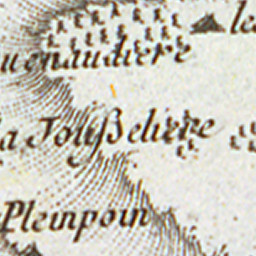 le
uenaudiere
a Toußeliere
Pleinpoin